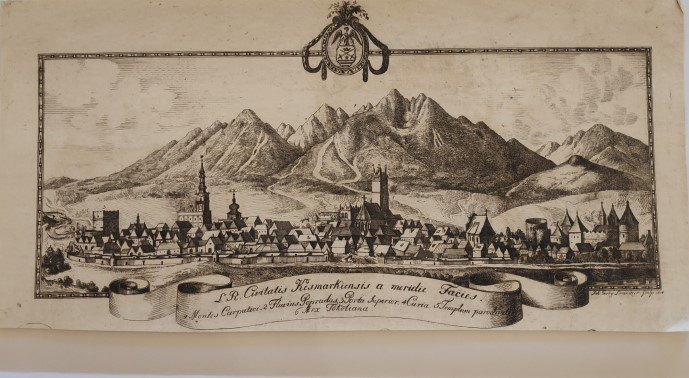 L. R. Civitatis Kismarkiensis a meridie Facies.
1 Montes Carpatici, 2 Fluvius Popradus, 3 Porta Superior, 4 Curia, 5 Templum paroch
6 Arx Tököliana